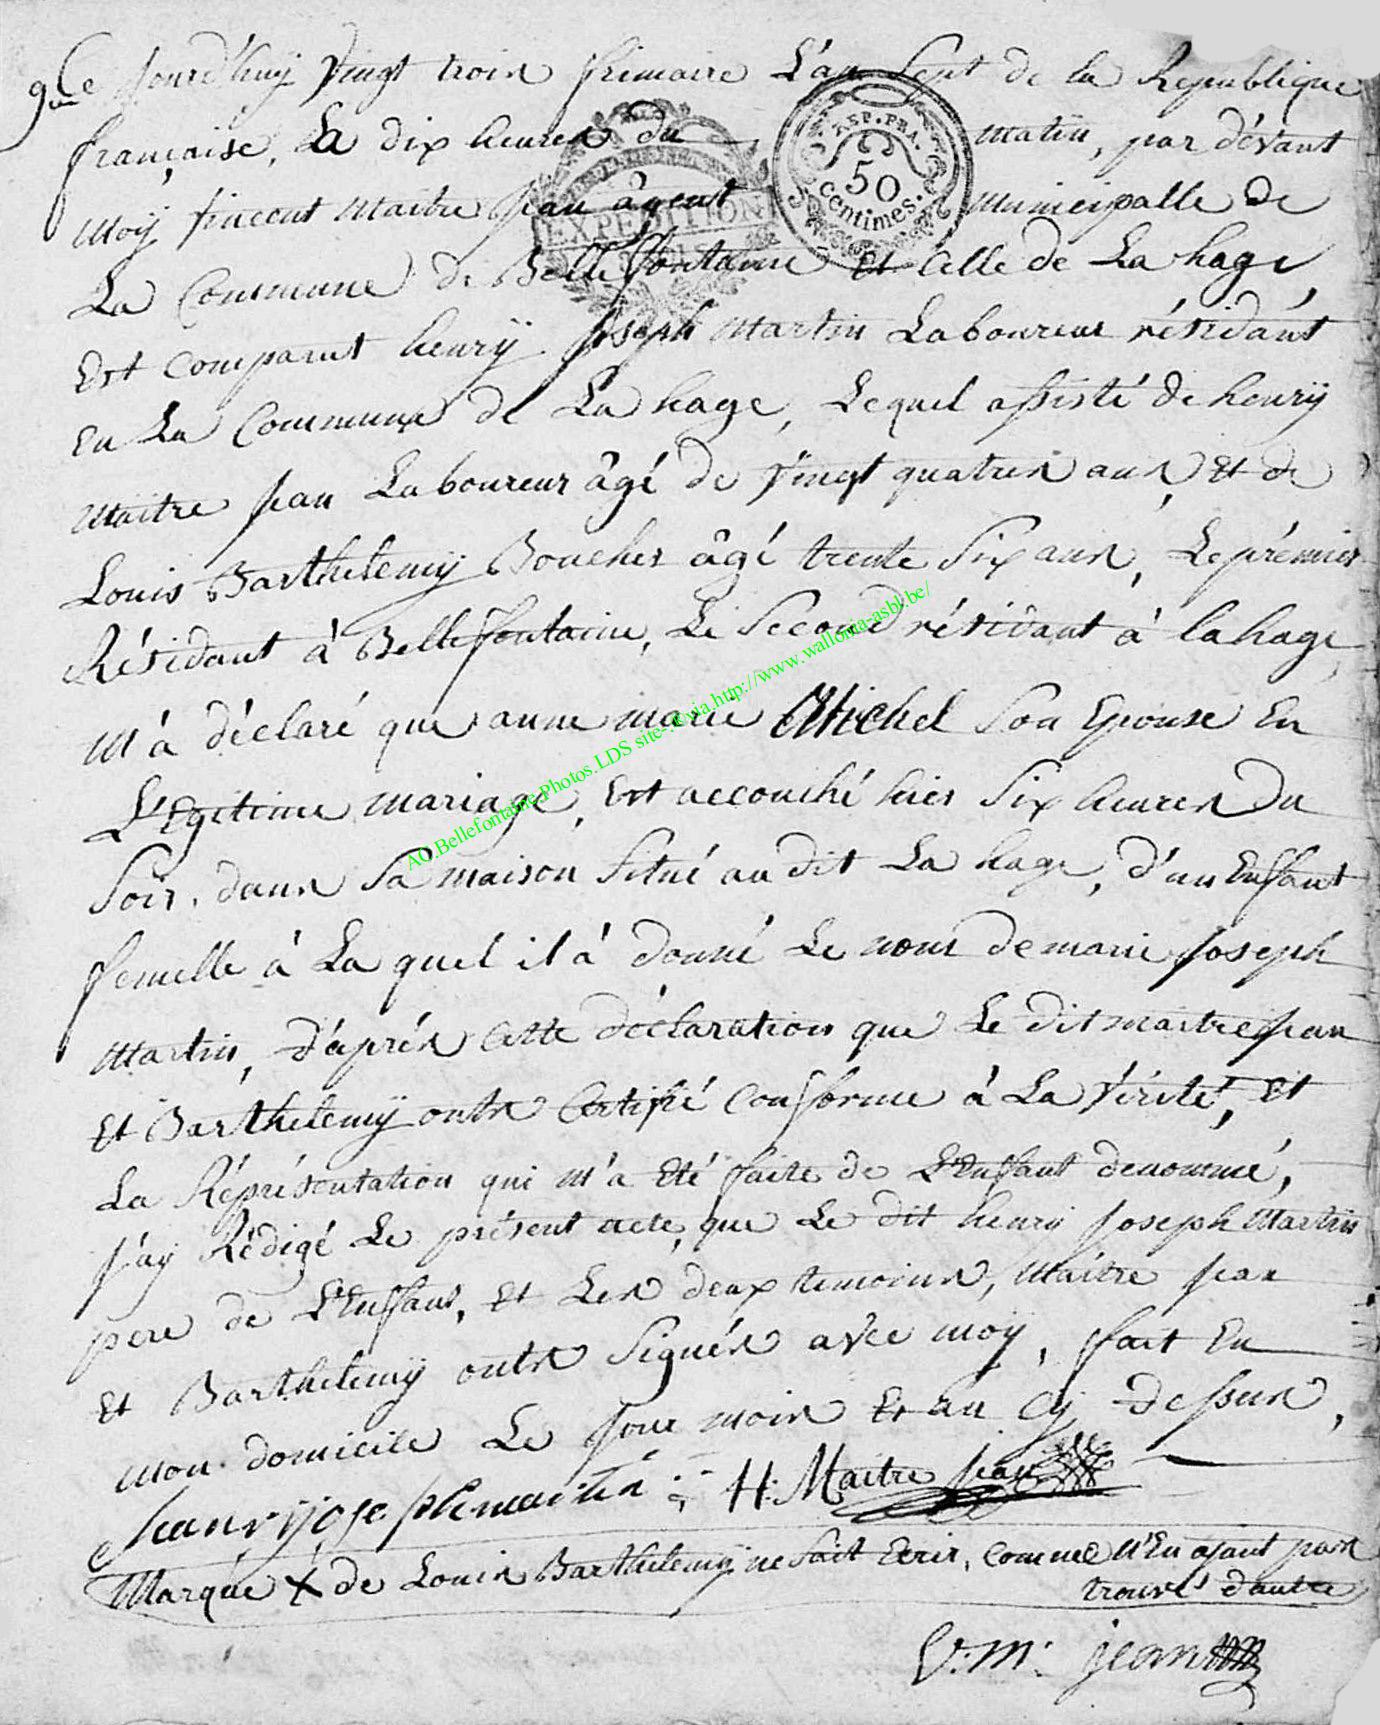 9me Ce Jourd'huy vingt trois frimaire L'an Sept de la Republique
française, La dix heures du matin, par dévant
REP. FRA.
50
centimes.
EXPEDITION
Moÿ vincent Maitre jean âgent Municipalle de
La Commune de Bellefontaine Et Celle de La hage,
Est comparut henrÿ joseph Martin Laboureur résidant
En La Commune de La hage, Lequel assisté de henrÿ
Maitre jean Laboureur âgé de vingt quatres ans, Et de
Louis Barthelemÿ Boucher âgé trente Six ans, Le prémier
Résidant à Bellefontaine, Le Second résidant à la hage,
M'à déclaré que anne marie Michel Son Epouse En
L'Egitime mariage, Est accouché hier Six heures Du
Soir, dans Sa maison Situé au dit La hage, d'un Enfant
femelle à La quel il à donné Le nom de marie joseph
Martin, d'áprés Cette déclaration que Le dit maitre jean
Et Barthelemÿ onts Certifié Conforme à La vérité, Et
La Réprésentation qui M'a Eté faite de L'Enfant denommé,
j'aÿ Rédigé Le présent acte, que Le dit henrÿ joseph Martin
pere de L'Enfant, Et Les deux temoins, Maitre jean
Et Barthelemÿ onts Signés avec moÿ, fait En
mon domicile Le jour mois Et an Cÿ Dessus,
heanrÿ joseph martin H: Maitre jean
Marque X de Louis Barthelemÿ ne Sait Ecrir, comme N'En aÿant pas
trouvé d'autre
V: M: jean
AC.Bellefontaine.Photos.LDS site->via.http://www.wallonia-asbl.be/